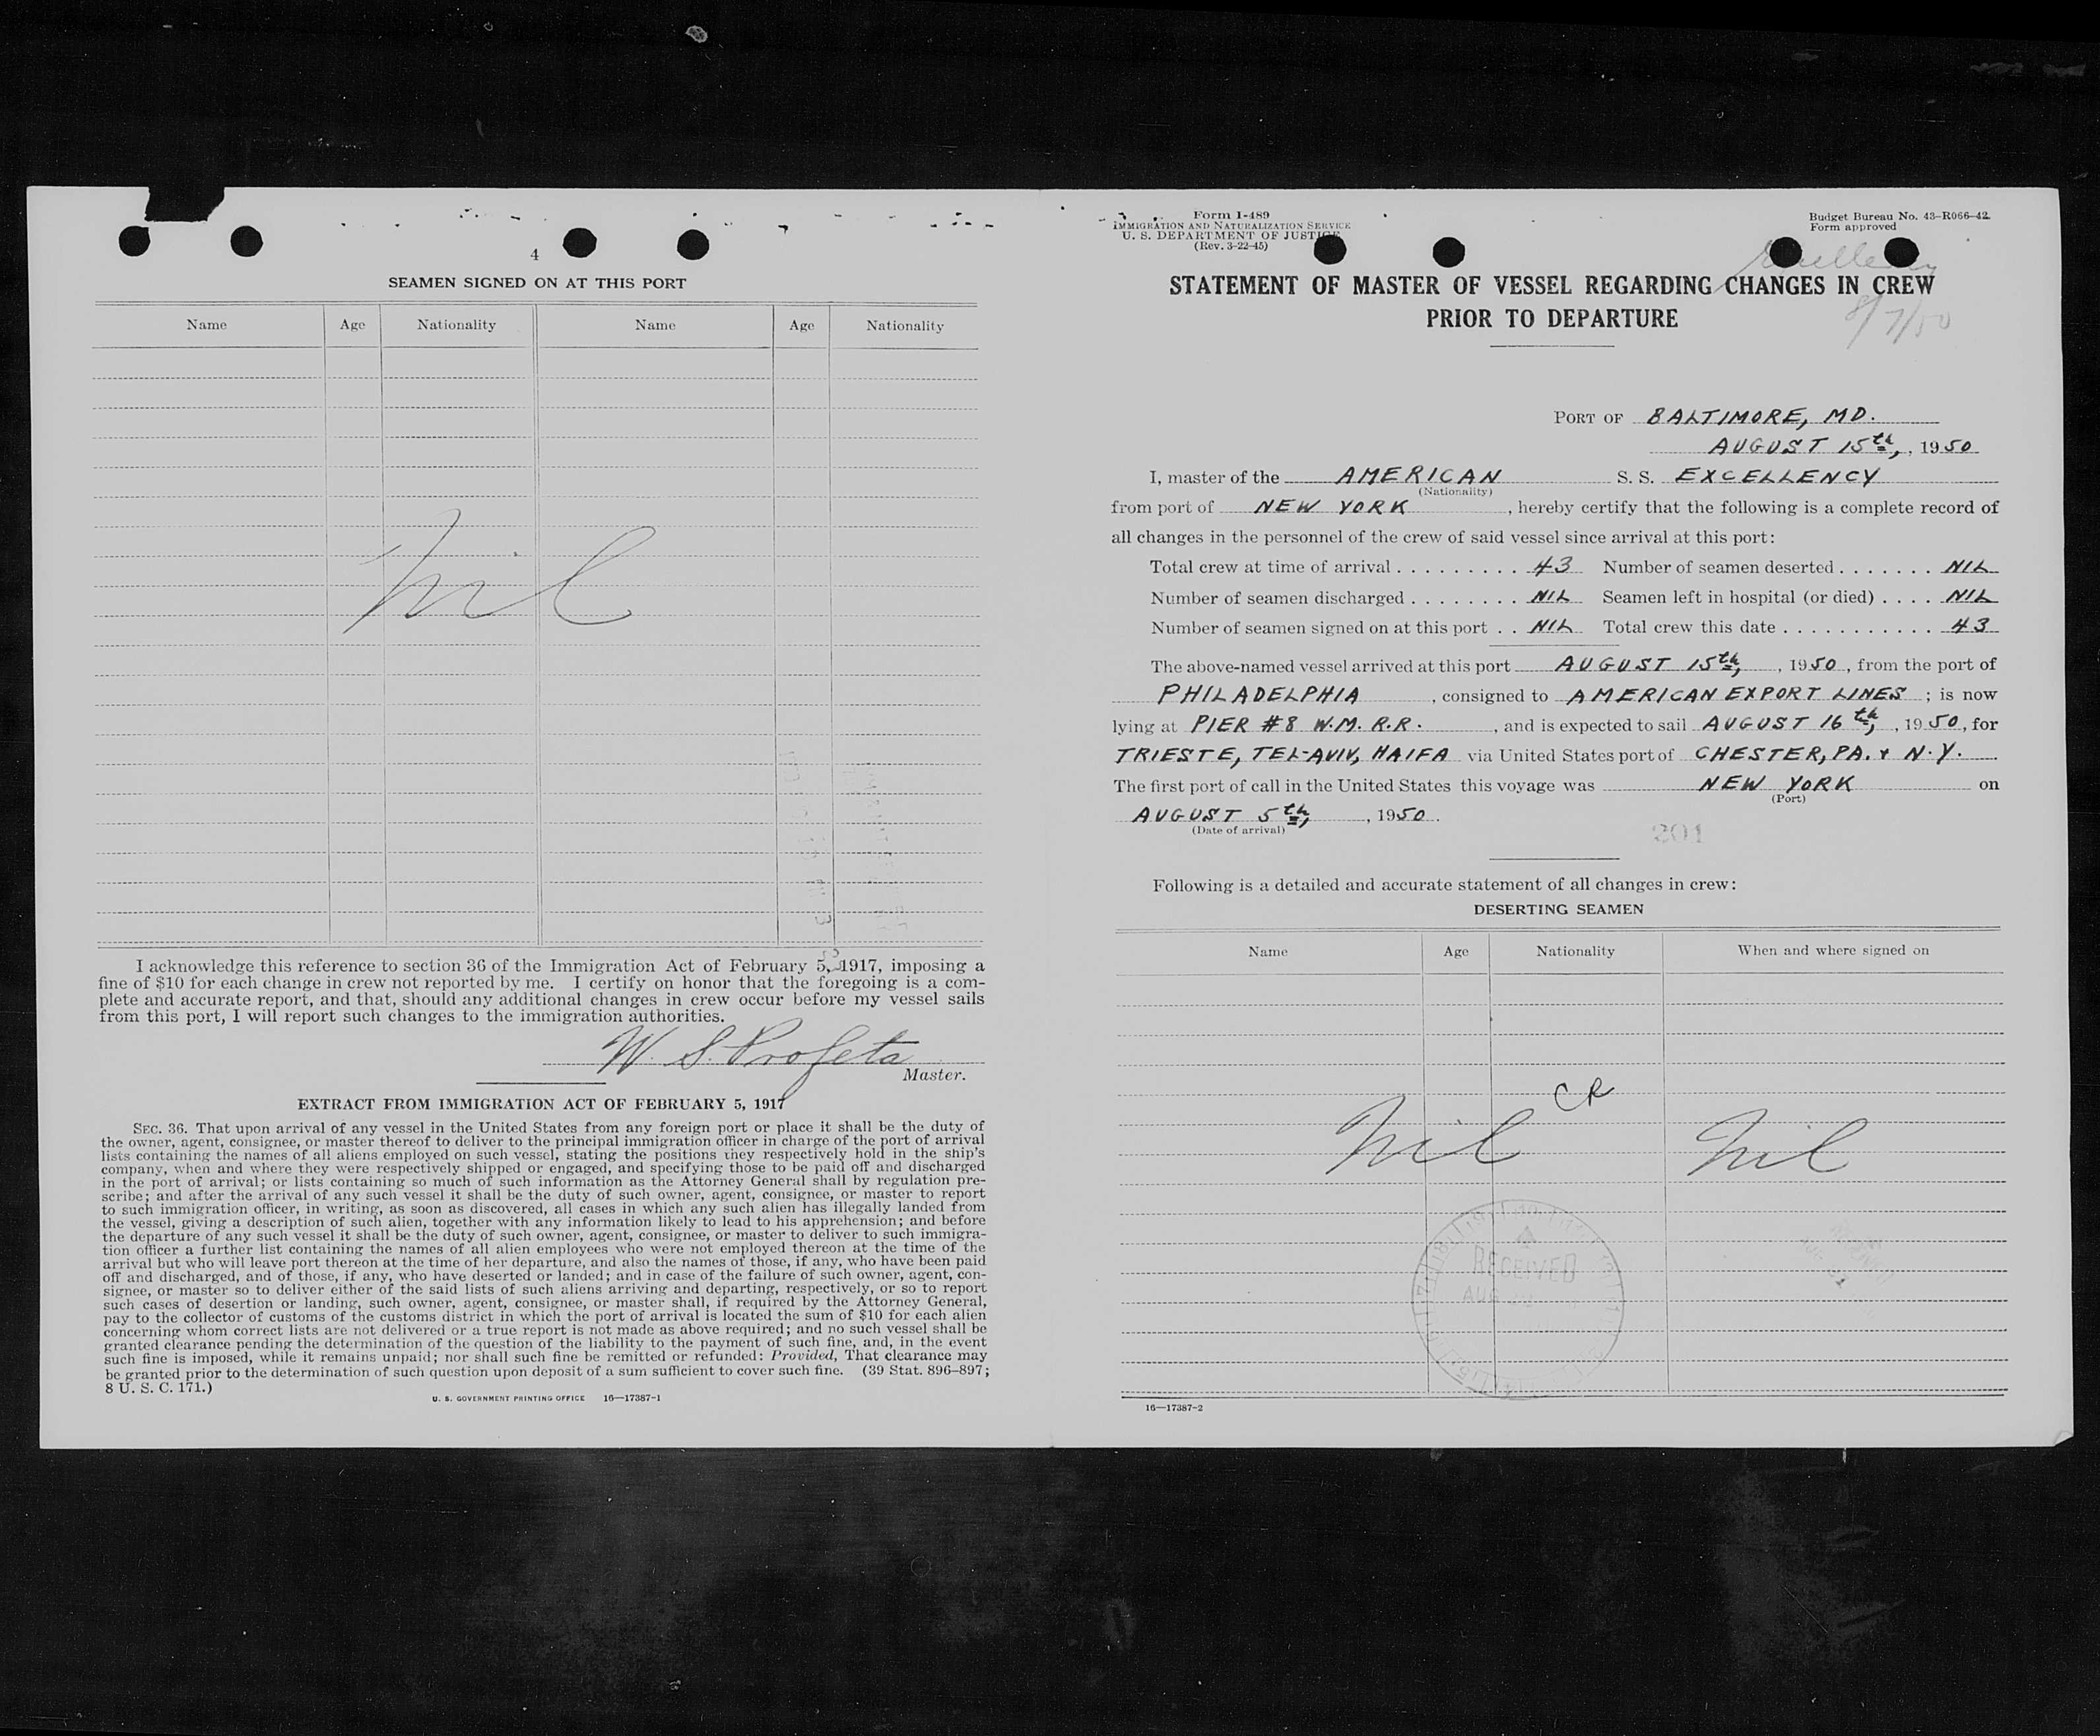 4
SEAMEN SIGNED ON AT THIS PORT
Name Age Nationality Name Age Nationality
Nil
I acknowledge this reference to section 36 of the Immigration Act of February 5, 1917, imposing a
fine of $10 for each change in crew not reported by me. I certify on honor that the foregoing is a com-
plete and accurate report, and that, should any additional changes in crew occur before my vessel sails
from this port, I will report such changes to the immigration authorities.
W. S. Profeta
Master.
EXTRACT FROM IMMIGRATION ACT OF FEBRUARY 5, 1917
SEC. 36. That upon arrival of any vessel in the United States from any foreign port or place it shall be the duty of
the owner, agent, consignee, or master thereof to deliver to the principal immigration officer in charge of the port of arrival
lists containing the names of all aliens employed on such vessel, stating the positions they respectively hold in the ship's
company, when and where they were respectively shipped or engaged, and specifying those to be paid off and discharged
in the port of arrival; or lists containing so much of such information as the Attorney General shall by regulation pre-
scribe; and after the arrival of any such vessel it shall be the duty of such owner, agent, consignee, or master to report
to such immigration officer, in writing, as soon as discovered, all cases in which any such alien has illegally landed from
the vessel, giving a description of such alien, together with any information likely to lead to his apprehension; and before
the departure of any such vessel it shall be the duty of such owner, agent, consignee, or master to deliver to such immigra-
tion officer a further list containing the names of all alien employees who were not employed thereon at the time of the
arrival but who will leave port thereon at the time of her departure, and also the names of those, if any, who have been paid
off and discharged, and of those, if any, who have deserted or landed; and in case of the failure of such owner, agent, con-
signee, or master so to deliver either of the said lists of such aliens arriving and departing, respectively, or so to report
such cases of desertion or landing, such owner, agent, consignee, or master shall, if required by the Attorney General,
pay to the collector of customs of the customs district in which the port of arrival is located the sum of $10 for each alien
concerning whom correct lists are not delivered or a true report is not made as above required; and no such vessel shall be
granted clearance pending the determination of the question of the liability to the payment of such fine, and, in the event
such fine is imposed, while it remains unpaid; nor shall such fine be remitted or refunded: Provided, That clearance may
be granted prior to the determination of such question upon deposit of a sum sufficient to cover such fine. (39 Stat. 896–897;
8 U. S. C. 171.)
U. S. GOVERNMENT PRINTING OFFICE 16—17387-1
Form I-489
IMMIGRATION AND NATURALIZATION SERVICE
U. S. DEPARTMENT OF JUSTICE
(Rev. 3-22-45)
Budget Bureau No. 43-R066-42
Form approved
STATEMENT OF MASTER OF VESSEL REGARDING CHANGES IN CREW
PRIOR TO DEPARTURE
8/7/50
PORT OF BALTIMORE, MD.
AUGUST 15th, , 1950
I, master of the AMERICAN S. S. EXCELLENCY
(Nationality)
from port of NEW YORK , hereby certify that the following is a complete record of
all changes in the personnel of the crew of said vessel since arrival at this port:
Total crew at time of arrival . . . . . . . . . . 43 Number of seamen deserted . . . . . . . NIL
Number of seamen discharged . . . . . . . . NIL Seamen left in hospital (or died) . . . . NIL
Number of seamen signed on at this port . . NIL Total crew this date . . . . . . . . . . . . 43
The above-named vessel arrived at this port AUGUST 15th, , 1950, from the port of
PHILADELPHIA , consigned to AMERICAN EXPORT LINES ; is now
lying at PIER #8 W.M. R.R. , and is expected to sail AUGUST 16th, , 1950, for
TRIESTE, TEL-AVIV, HAIFA via United States port of CHESTER, PA. + N.Y.
The first port of call in the United States this voyage was NEW YORK on
(Port)
AUGUST 5th, , 1950.
(Date of arrival)
201
Following is a detailed and accurate statement of all changes in crew:
DESERTING SEAMEN
Name Age Nationality When and where signed on
CR
Nil Nil
RECEIVED
AUG
16—17387-2